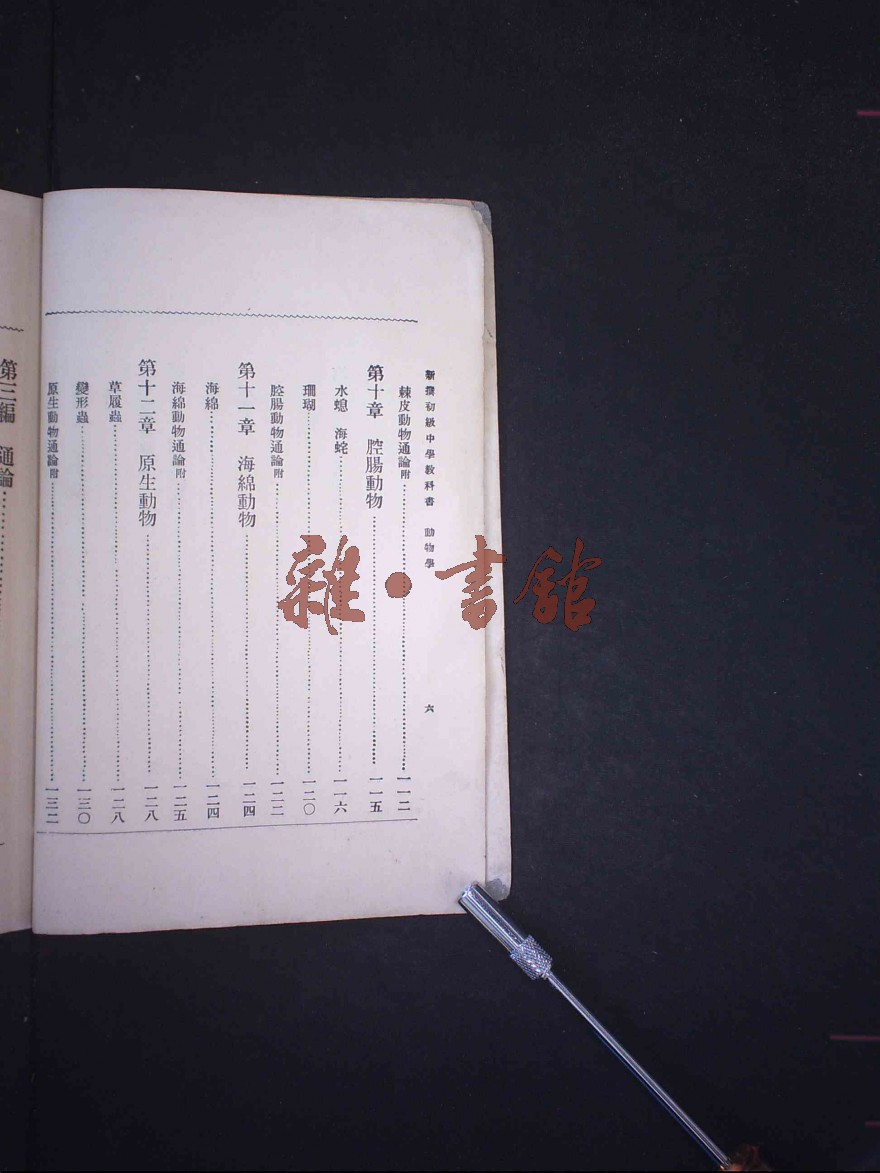 新撰初級中學教科書　動物學　六
棘皮動物通論附……一一二
第十章　腔腸動物……一一五
水螅　海蛇……一一六
珊瑚……一二〇
腔腸動物通論附……一二二
第十一章　海綿動物……一二四
海綿……一二四
海綿動物通論附……一二五
第十二章　原生動物……一二八
草履蟲……一二八
變形蟲……一三〇
原生動物通論附……一三二
第三編　通論……
雜·書館